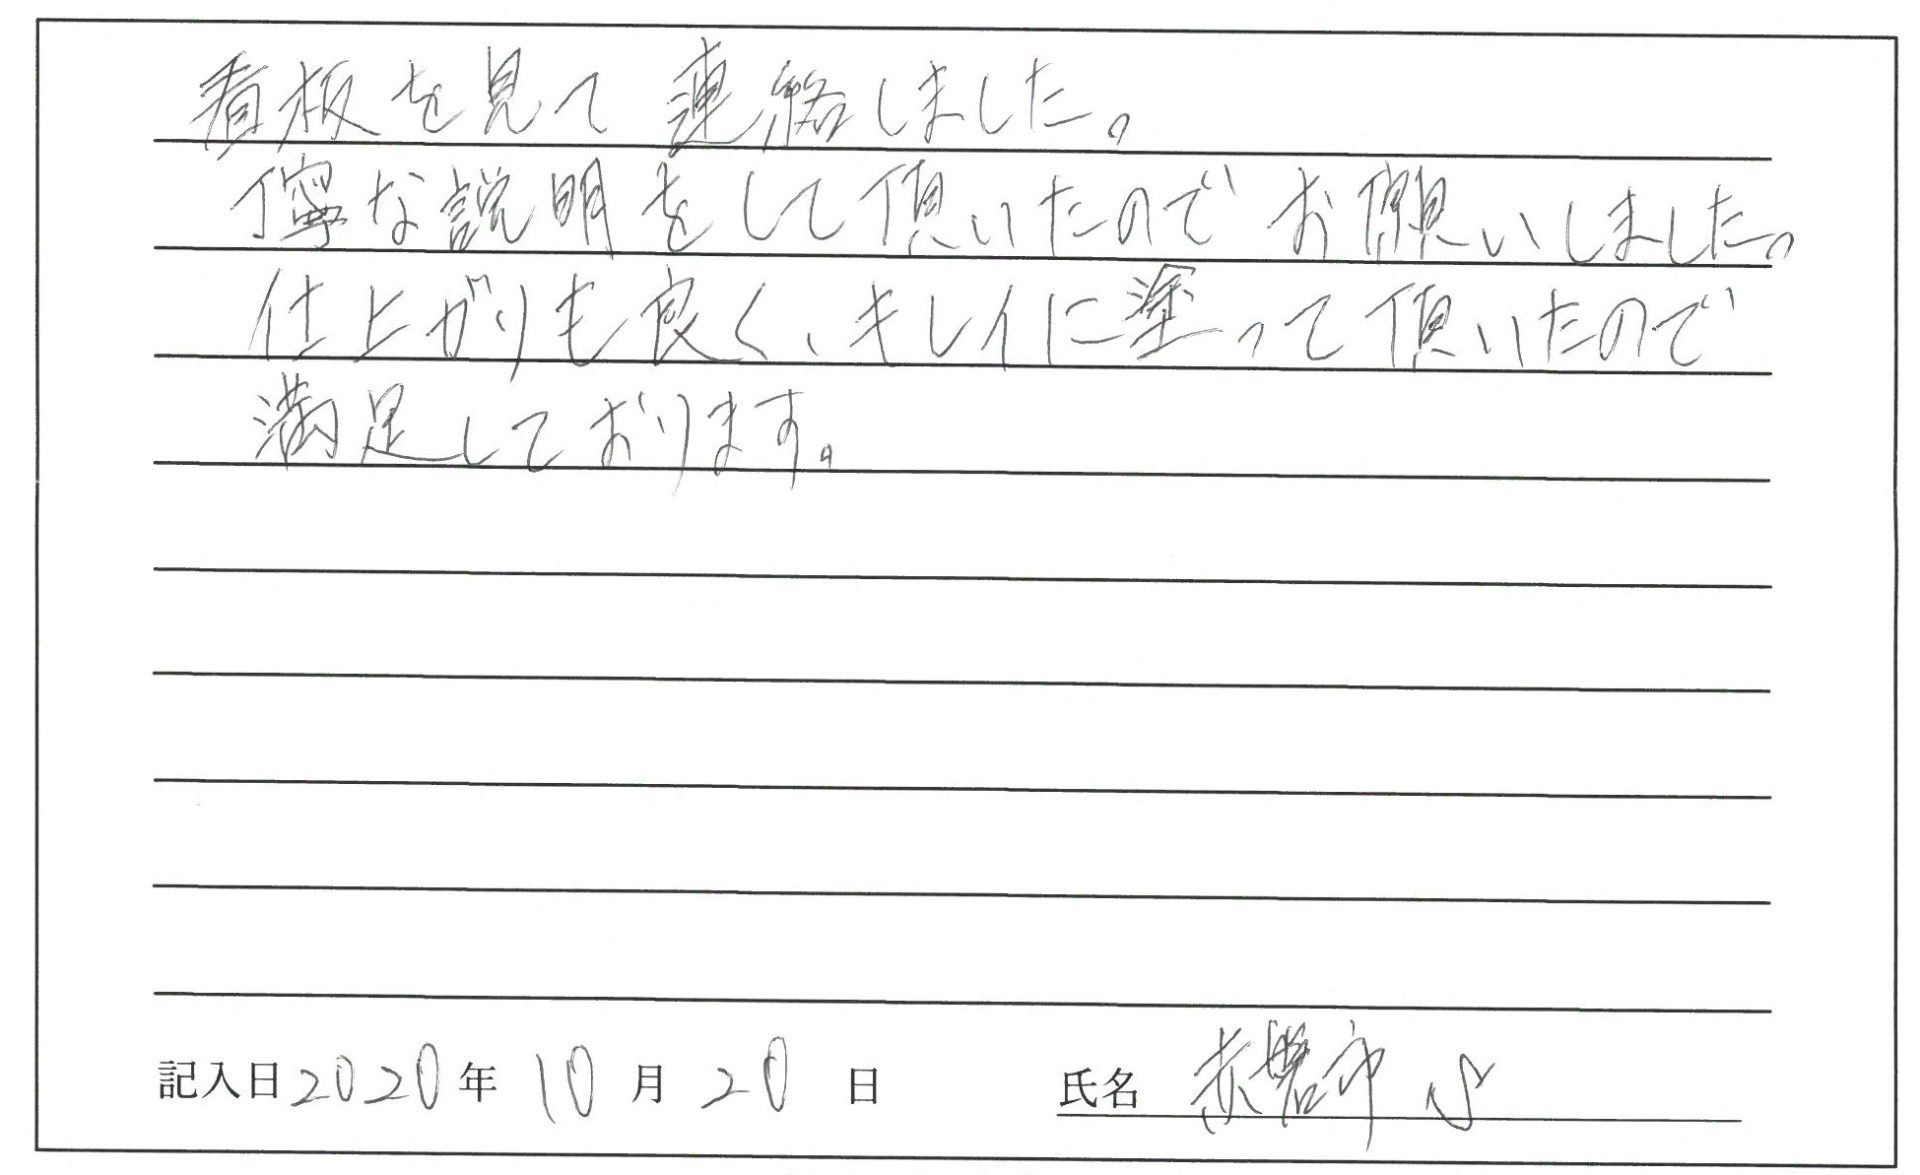 看板を見て連絡しました。
丁寧な説明をして頂いたのでお願いしました。
仕上がりも良く、キレイに塗って頂いたので
満足しております。
記入日2020年10月20日 氏名 赤磐市 S